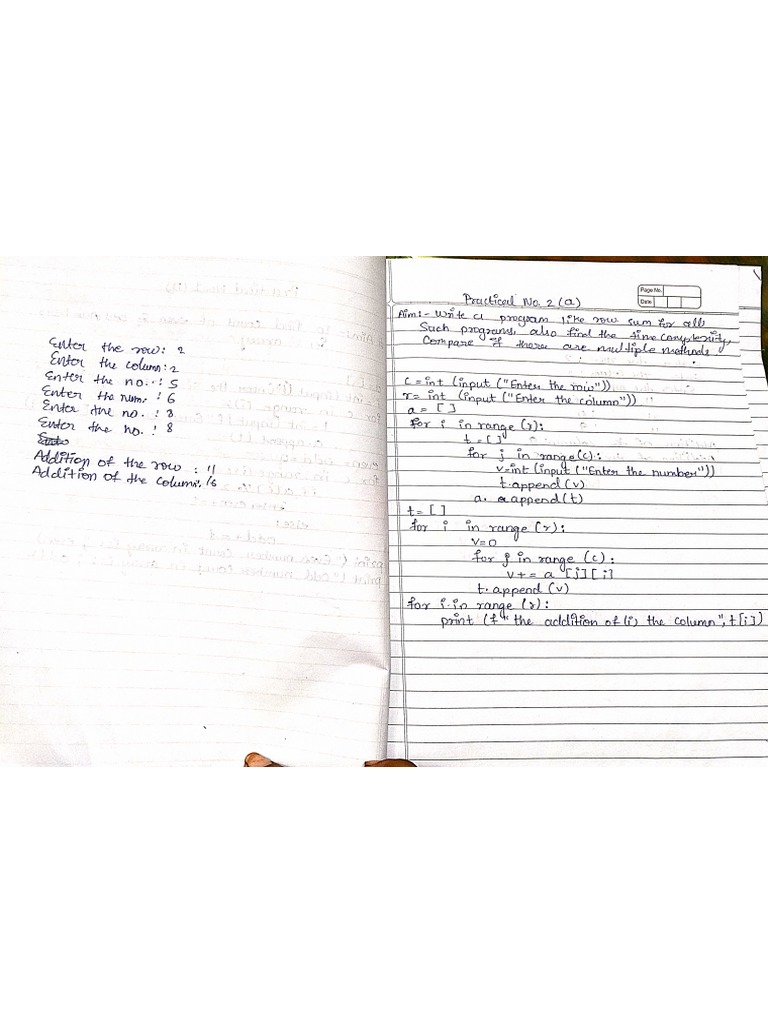 Enter the row: 2
Enter the column: 2
Enter the no. : 5
Enter the num. : 6
Enter the no. : 8
Enter the no. : 8
Addition of the row : 11
Addition of the column: 16
Page No.
Date
Practical No. 2 (a)
Aim:- Write a program like row sum for all
Such programs, also find the time complexity
Compare if there are multiple methods
c = int (input ("Enter the row"))
r = int (input ("Enter the column"))
a = [ ]
for i in range (r):
t = [ ]
for j in range (c):
v=int (input ("Enter the number"))
t.append (v)
a. append (t)
t = [ ]
for i in range (r):
v=0
for j in range (c):
v += a [j] [i]
t.append (v)
for i in range (r):
print (f" the addition of (i) the column", t[i])